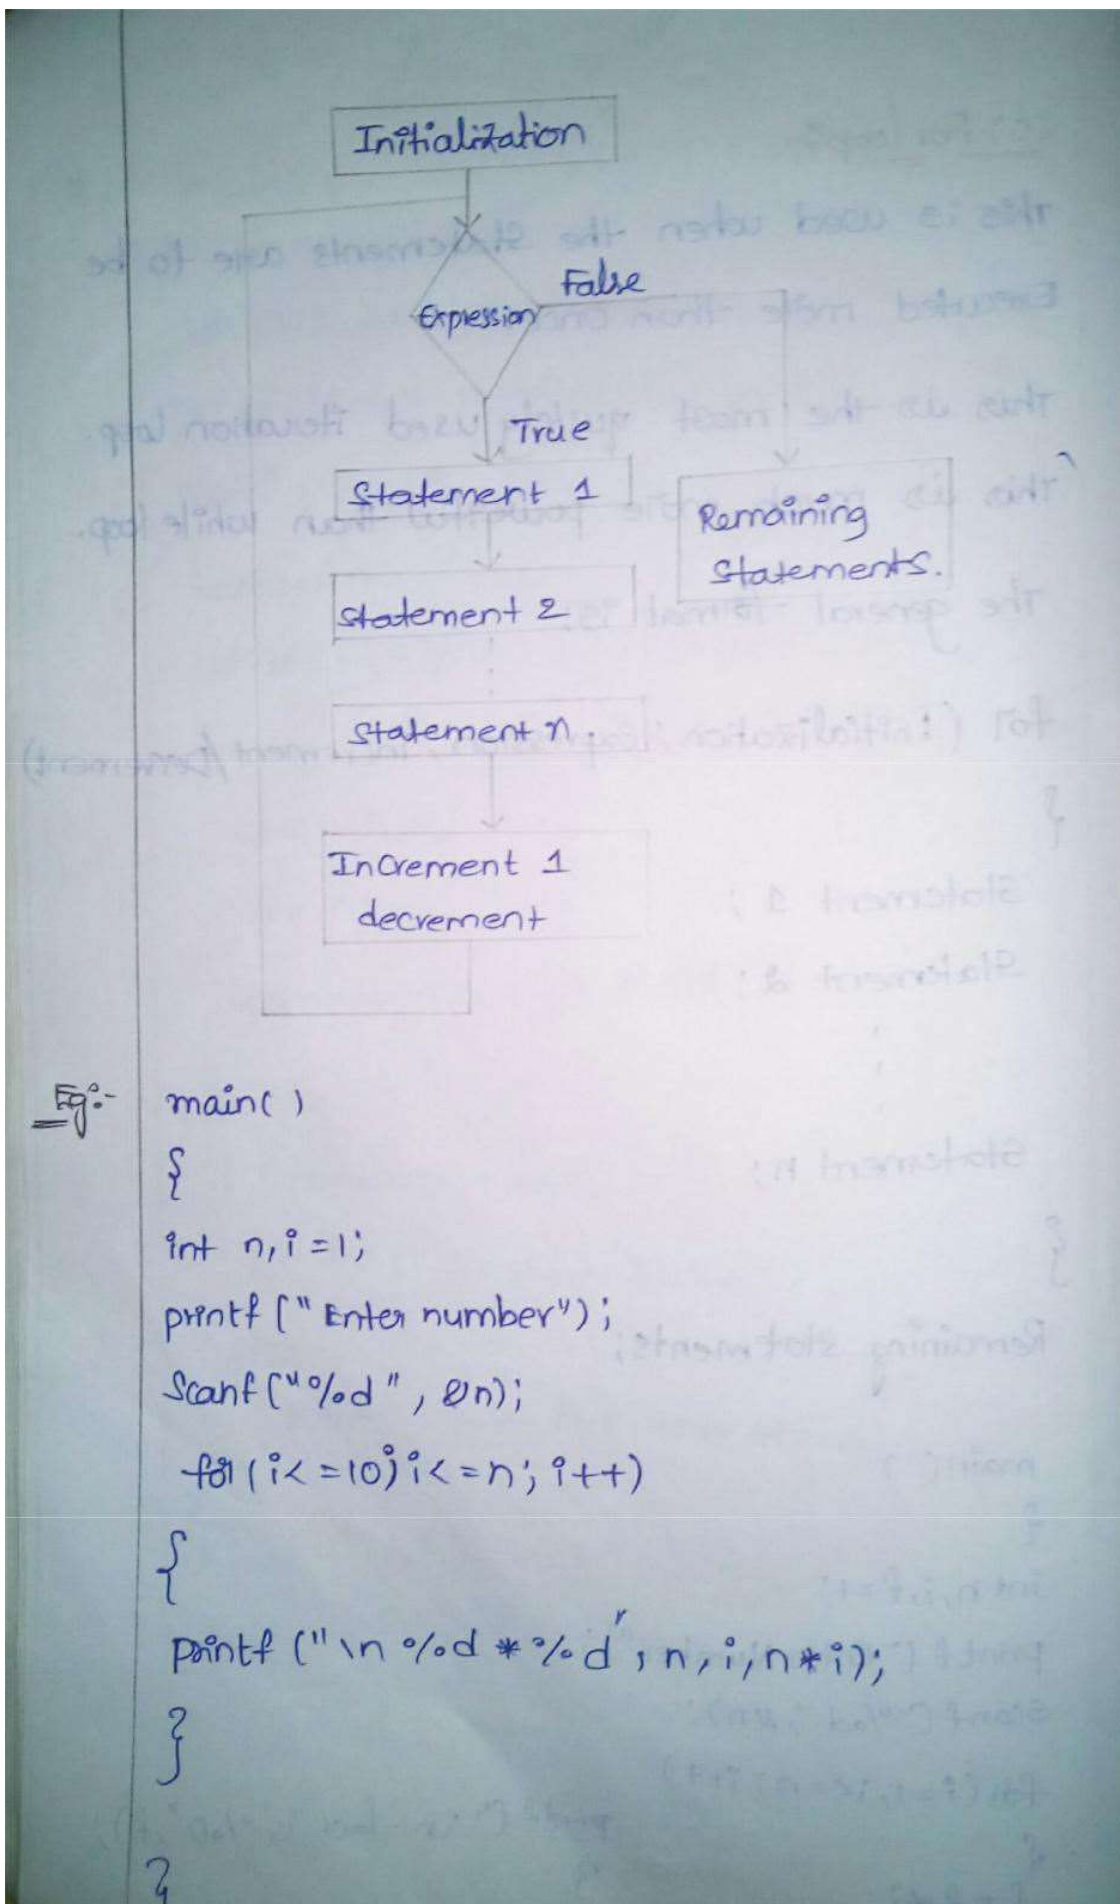 Initialization
False
Expression
True
Statement 1
Remaining
Statements.
Statement 2
Statement n.
Increment 1
decrement
Eg:-
main( )
{
int n, i = 1;
printf (" Enter number");
Scanf ("%d", &n);
for ( i< =10; i< =n; i++)
{
printf ("\n %d * %d", n, i, n*i);
}
}